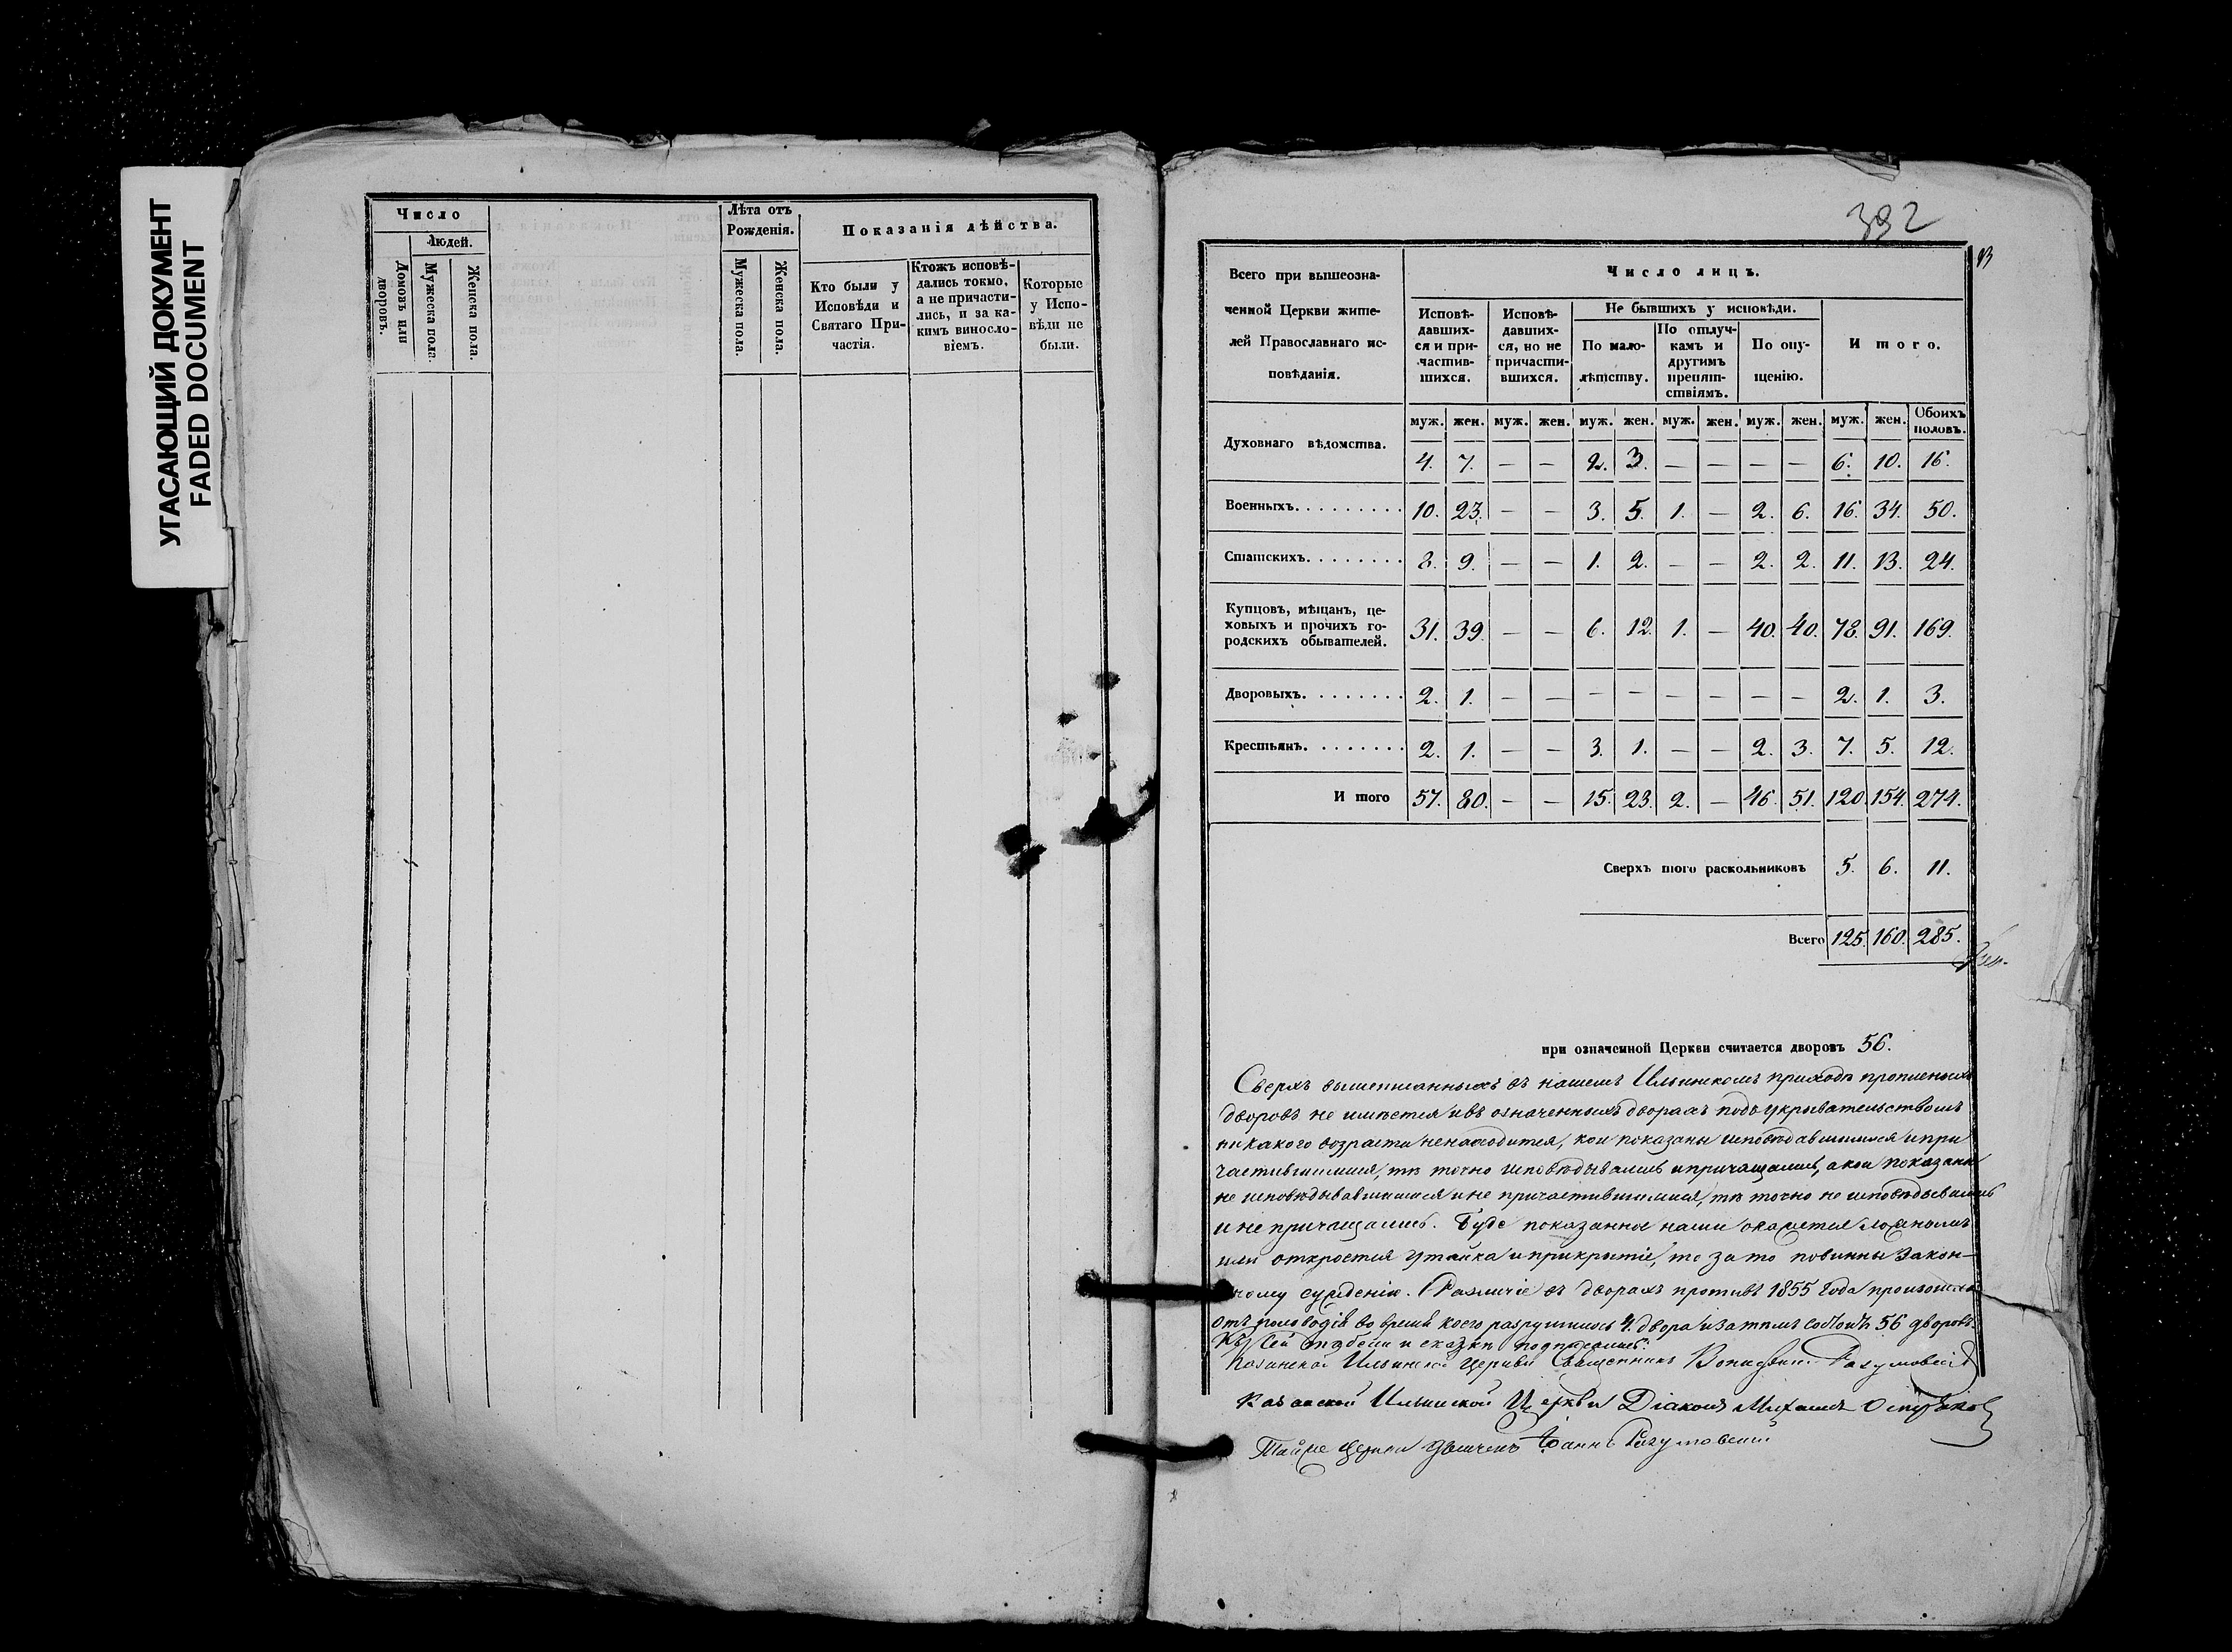 УГАСАЮЩИЙ ДОКУМЕНТ
FADED DOCUMENT
Число
Людей.
Домовъ или дворовъ.
Мужеска пола.
Женска пола.
Лѣта отъ
Рожденія.
Мужеска пола.
Женска пола.
Показанія дѣйства.
Кто были у
Исповѣди и
Святаго При-
частія.
Ктожъ исповѣ-
дались токмо,
а не причасти-
лись, и за ка-
кимъ винословіемъ.
Которые
у Испо-
вѣди не
были.
392
Всего при вышеозна-
ченной Церкви жите-
лей Православнаго ис-
повѣданія.
Число лицъ.
Исповѣ-
давших-
ся и при-
частив-
шихся.
Исповѣ-
давших-
ся, но не
причасти-
вшихся.
Не бывшихъ у исповѣди.
По мало-
лѣтству.
По отлуч-
камъ и
другимъ
препят-
ствіямъ.
По опу-
щенію.
Итого.
муж. жен. муж. жен. муж. жен. муж. жен. муж. жен. муж. жен. Обоихъ половъ.
Духовнаго вѣдомства. 4. 7. — — 2. 3. — — — — 6. 10. 16.
Военныхъ. . . . . . . . . 10. 23. — — 3. 5. 1. — 2. 6. 16. 34. 50.
Статскихъ. . . . . . . . 8. 9. — — 1. 2. — — 2. 2. 11. 13. 24.
Купцовъ, мѣщанъ, це-
ховыхъ и прочихъ го-
родскихъ обывателей. 31. 39. — — 6. 12. 1. — 40. 40. 78. 91. 169.
Дворовыхъ. . . . . . . . 2. 1. — — — — — — — — 2. 1. 3.
Крестьянъ. . . . . . . . 2. 1. — — 3. 1. — — 2. 3. 7. 5. 12.
И того 57. 80. — — 15. 23. 2. — 46. 51. 120. 154. 274.
Сверхъ того раскольниковъ 5. 6. 11.
Всего 125. 160. 285.
при означенной Церкви считается дворовъ 56.
Сверхъ вышеписанныхъ въ нашемъ Ильинскомъ приходѣ
дворовъ не имѣется и въ означенныхъ дворахъ подъ укрывательствомъ
никакого возраста ненаходится, кои показаны исповѣдавшимися и при
частившимися, тѣ точно исповѣдывались и причащались, а кои показаны
не исповѣдывавшимися и не причастившимися, тѣ точно не исповѣдывались
и не причащались. Буде показанное нами окажется ложнымъ
или откроется утайка и прикрытіе, то за то повинны закон-
ному сужденію. Различіе въ дворахъ противъ 1855 года произошло
отъ половодія во время коего разрушилось 4. двора и затѣмъ состоитъ 56 дворовъ.
Къ сей табели и сказкѣ подписались:
Казанской Ильинской Церкви Священникъ Разумовскій
Казанской Ильинской Церкви Діаконъ Михаилъ
Тойже Церкви Іоаннъ Разумовскій